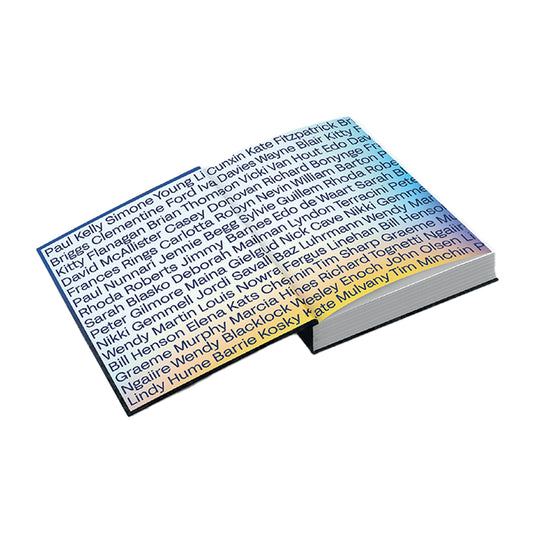 Paul Kelly Simone Young Li Cunxin Kate Fitzpatrick Bri
Briggs Clementine Ford Iva Davies Wayne Blair Kitty F
Kitty Flanagan Brian Thomson Vicki Van Hout Edo Da
David McAllister Casey Donovan Richard Bonynge Fr
Frances Rings Carlotta Robyn Nevin William Barton P
Paul Nunnari Jennie Begg Sylvie Guillem Rhoda Robert
Rhoda Roberts Jimmy Barnes Edo de Waart Sarah Bl
Sarah Blasko Deborah Mailman Lyndon Terracini Pete
Peter Gilmore Maina Gielgud Nick Cave Nikki Gemme
Nikki Gemmell Jordi Savall Baz Luhrmann Wendy Mar
Wendy Martin Louis Nowra Fergus Linehan Bill Henson
Bill Henson Elena Kats Chernin Tim Sharp Graeme Mu
Graeme Murphy Marcia Hines Richard Tognetti Ngaiire
Ngaiire Wendy Blacklock Wesley Enoch John Olsen
Lindy Hume Barrie Kosky Kate Mulvany Tim Minchin P